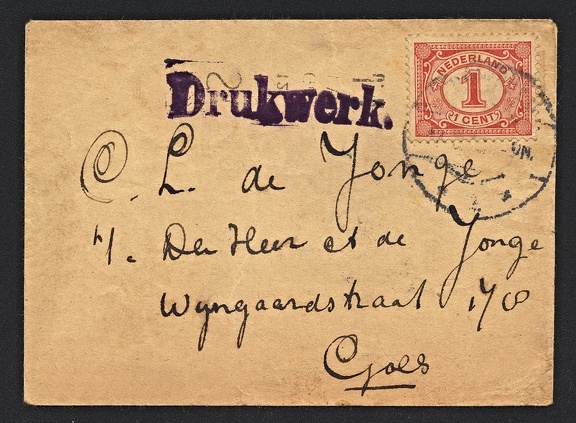 NEDERLAND
1
1 CENT
Drukwerk.
C. L. de Jonge
Den Heer de Jonge
Wyngaardstraat
Goes